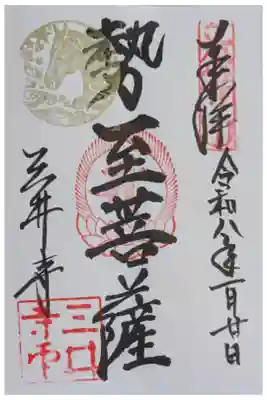 奉拝 令和八年一月廿日
勢至菩薩
三井寺